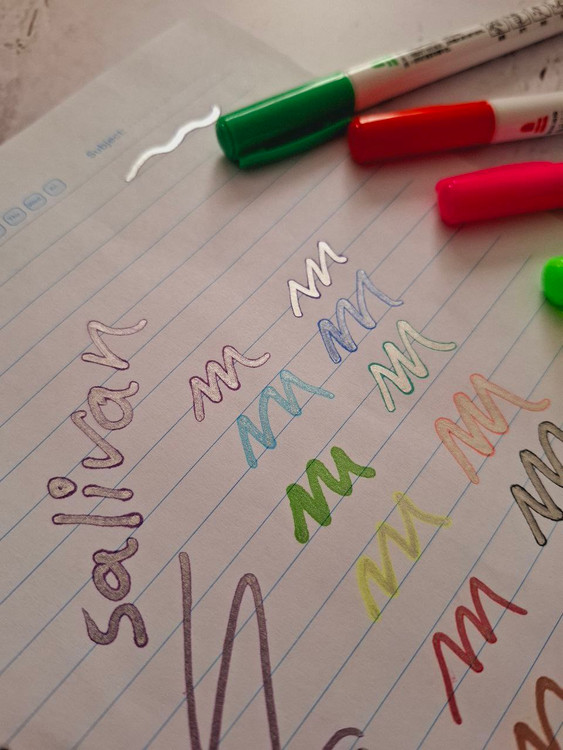 Subject:
salivan